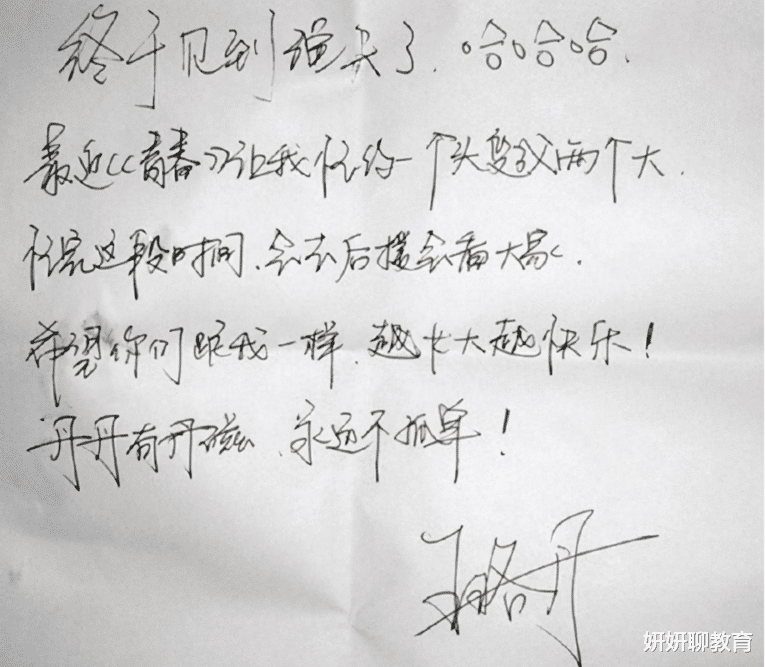 终于见到组头了.哈哈哈.
最近《青春》让我忙的一个头变成两个大.
忙完这段时间.会去后援会看大家.
希望你们跟我一样.越长大越快乐!
丹丹有丹磁.永远不孤单!
王珞丹
妍妍聊教育